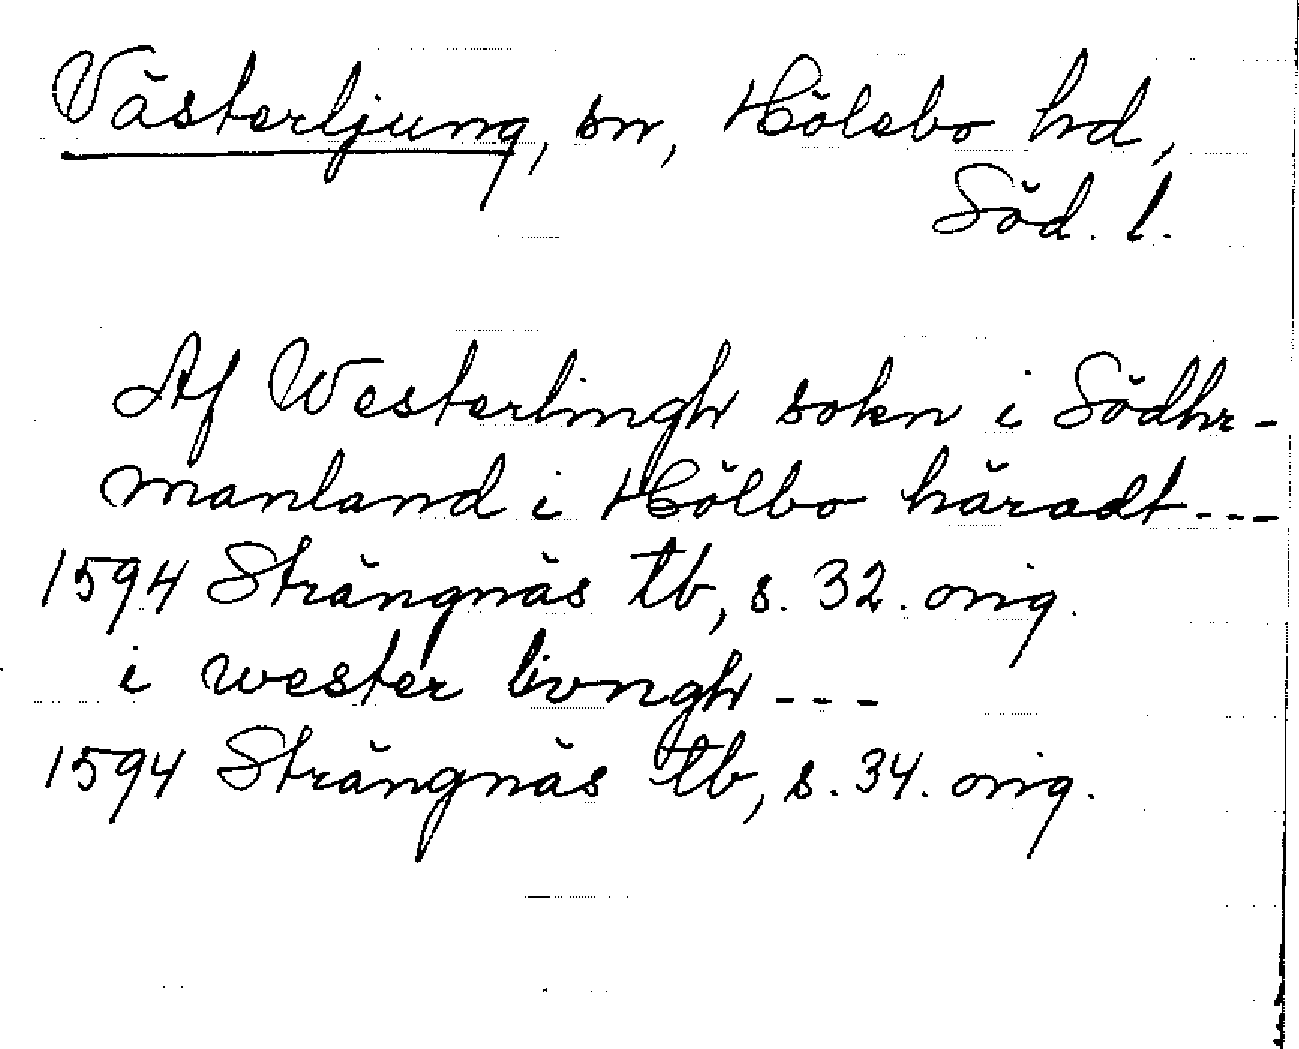 Västerljung, sn, Hölebo hd,
Söd. l.
Af Westerlingh sokn i Södhr-
manland i Hölbo häradt---
1594 Strängnäs tb, s. 32. orig.
i wester livngh---
1594 Strängnäs tb, s. 34. orig.